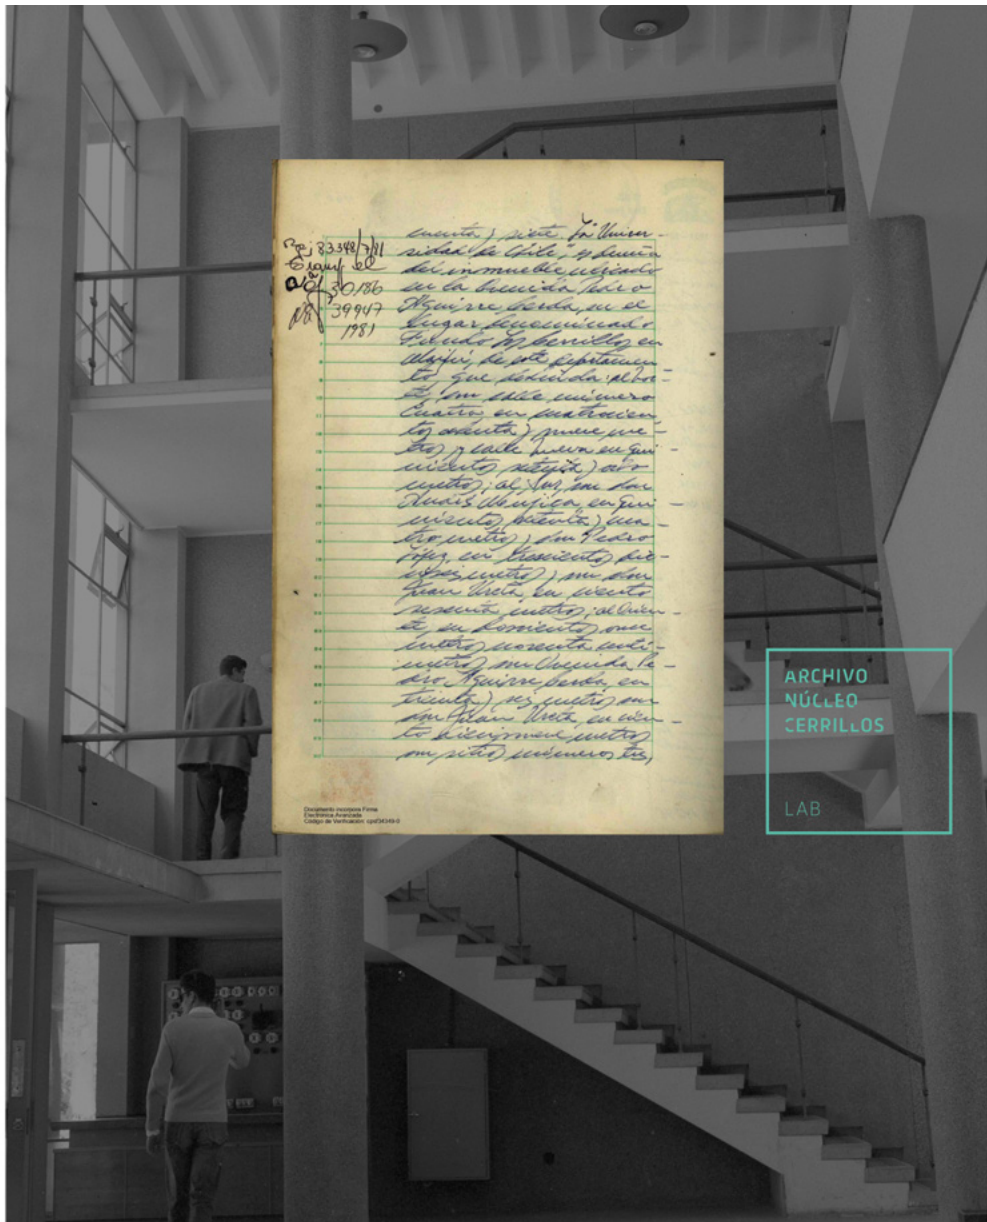 Rej 83348/7/81
30186
Nº 39947
1981
cuenta y siete. La Univer-
sidad de Chile, es dueña
del inmueble ubicado
en la Avenida Pedro
Aguirre Cerda, en el
lugar denominado
Fundo Los Cerrillos en
de este departamen-
to, que deslinda: al Nor-
te, con calle número
Cuatro en cuatrocien-
tos ochenta y nueve me-
tros y calle Nueva en qui-
nientos setenta y ocho
metros; al Sur, con don
Mujica en qui-
nientos setenta y cua-
tro metros; don Pedro
López en trescientos die-
ciseis metros y con don
Juan Ureta en ciento
sesenta metros; al Orien-
te, en doscientos once
metros noventa centí-
metros con Avenida Pe-
dro Aguirre Cerda, en
treinta y seis metros con
don Juan Ureta, en cien-
to diecinueve metros
con sitios números tres,
Documento incorpora Firma
Electrónica Avanzada
Código de Verificación:
ARCHIVO
NÚCLEO
CERRILLOS
LAB